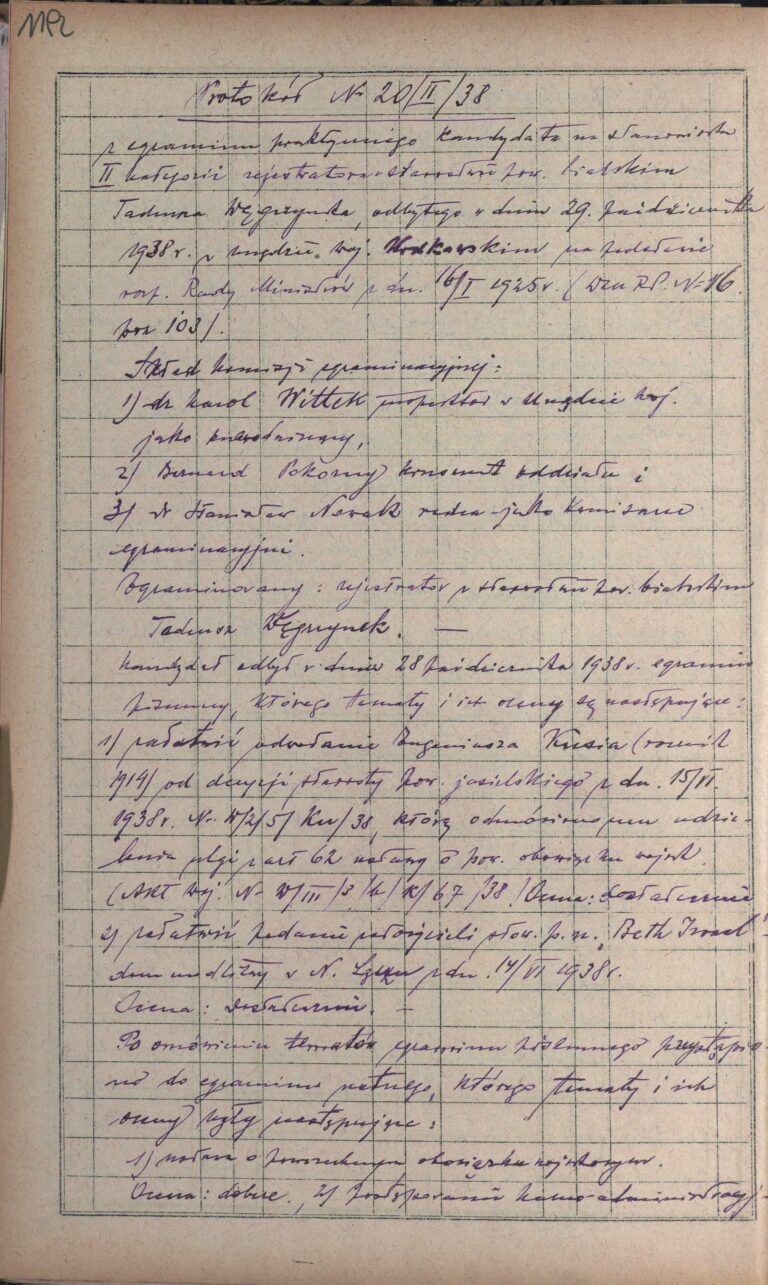 Protokół Nr 20/II/38
z egzaminu praktycznego kandydata na stanowisko
II kategorii rejestratora w starostwie pow. bialskim
Tadeusza Węgrzynka, odbytego w dniu 29. października
1938 r. w urzędzie woj. Krakowskim na podstawie
rozp. Rady Ministrów z dn. 16/I 1925 r. (Dzu RP. Nr 16
poz 103).
Skład komisji egzaminacyjnej:
1) dr Karol Wittek inspektor w Urzędzie Woj.
jako przewodniczący,
2) Bernard Pokorny oddziału i
3) dr Stanisław Nowak radca - jako Komisarze
egzaminacyjni.
Egzaminowany: rejestrator w starostwie pow. bialskim
Tadeusz Węgrzynek. —
Kandydat odbył w dniu 28 października 1938 r. egzamin
pisemny, którego tematy i ich oceny są następujące:
1) załatwić odwołanie Eugeniusza Kusia (rocznik
1914) od decyzji starosty pow. jasielskiego z dn. 15/VI.
1938 r. Nr. W/2/5/Ku/38, którą odmówiono mu udzie-
lenia ulgi z art 62 ustawy o pow. obowiązku wojsk.
(Akt woj. Nr W/III/3/b/K/67/38) Ocena: dostatecznie
2) załatwić podanie założycieli stow. p. n. „Beth Israel"
dom modlitwy w N. Sączu z dn. 14/VI 1938 r.
Ocena: dostatecznie. —
Po omówieniu tematów egzaminu pisemnego przystąpio-
no do egzaminu ustnego, którego tematy i ich
oceny były następujące:
1) ustawa o powszechnym obowiązku wojskowym.
Ocena: dobrze., 2) postępowanie karno-administracyj-